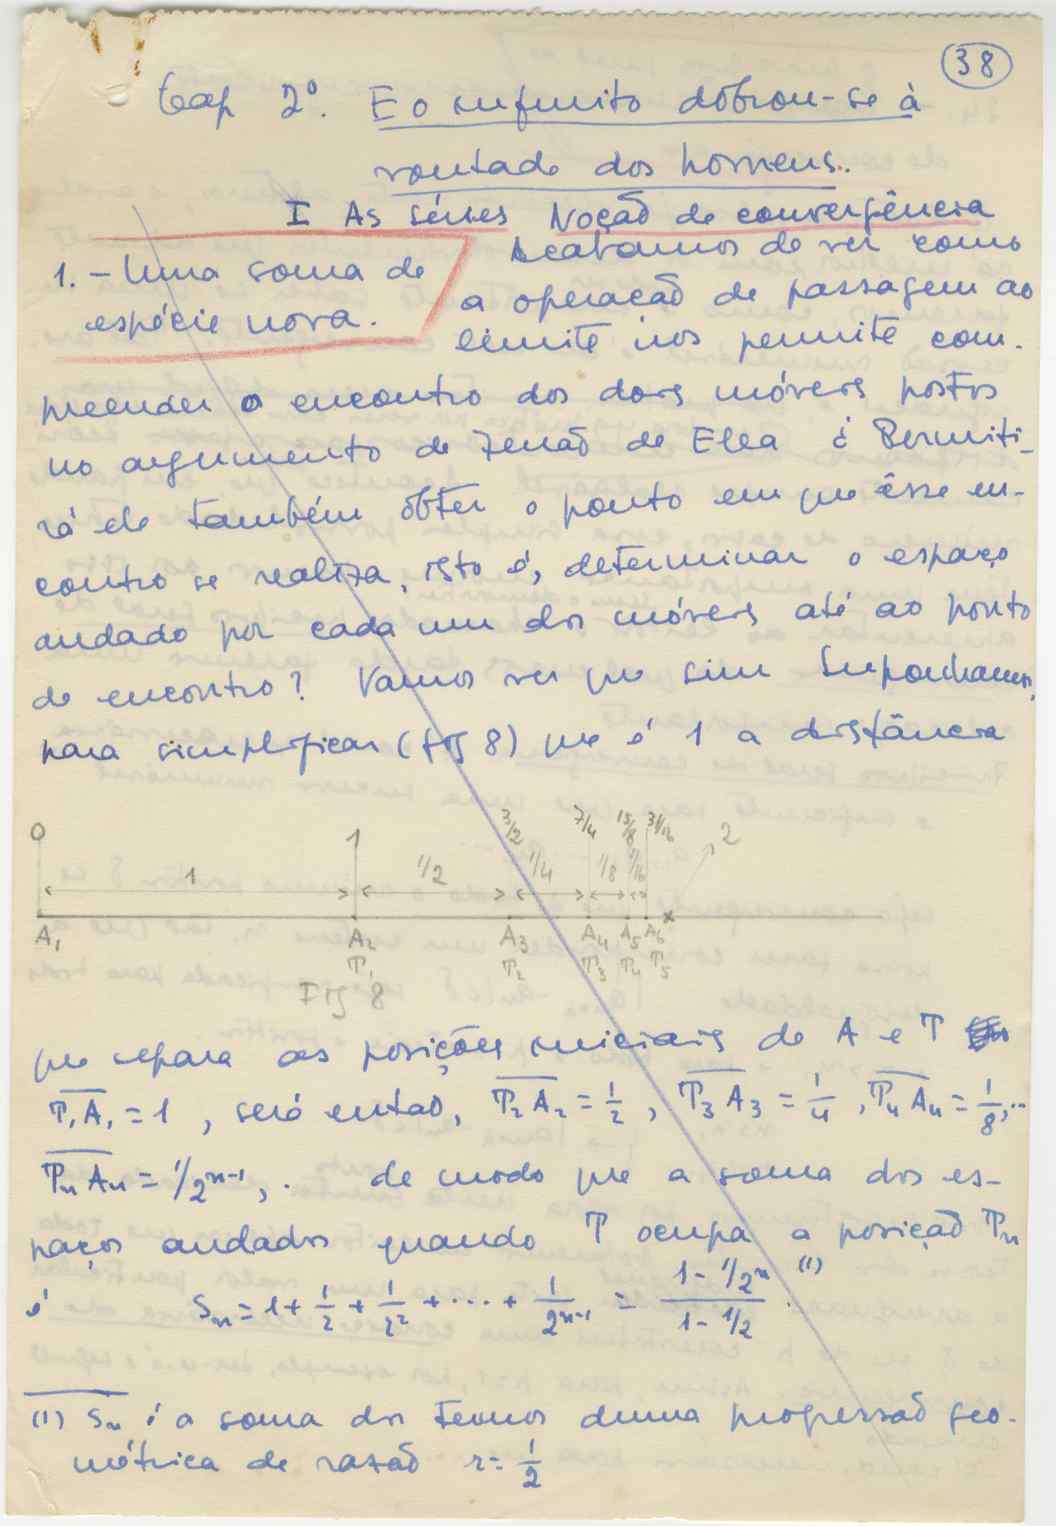 38
Cap 2º. E o infinito dobrou-se à
vontade dos homens..
I As séries Noção de convergência
1. - Uma soma de
espécie nova.
Acabamos de ver como
a operação de passagem ao
limite nos permite com-
preender o encontro dos dois móveis postos
no argumento de Zenão de Elea. Permiti-
rá ele também obter o ponto em que êsse en-
contro se realiza, isto é, determinar o espaço
andado por cada um dos móveis até ao ponto
de encontro? Vamos ver que sim Suponhamos,
para simplificar (fig 8) que é 1 a distância
0 1 3/2 7/4 15/8 31/16 2
1 1/2 1/4 1/8 1/16
A₁ A₂ A₃ A₄ A₅ A₆
T₁ T₂ T₃ T₄ T₅
Fig 8
que separa as posições iniciais de A e T
T₁A₁ = 1, será então, T₂A₂ = 1/2, T₃A₃ = 1/4, T₄A₄ = 1/8,..
TₙAₙ = 1/2ⁿ⁻¹,. de modo que a soma dos es-
paços andados quando T ocupa a posição Tₙ
é Sₙ = 1 + 1/2 + 1/2² + .... + 1/2ⁿ⁻¹ = (1 - 1/2ⁿ)/(1 - 1/2) . (1)
(1) Sₙ é a soma dos termos duma progressão geo-
métrica de razão r = 1/2